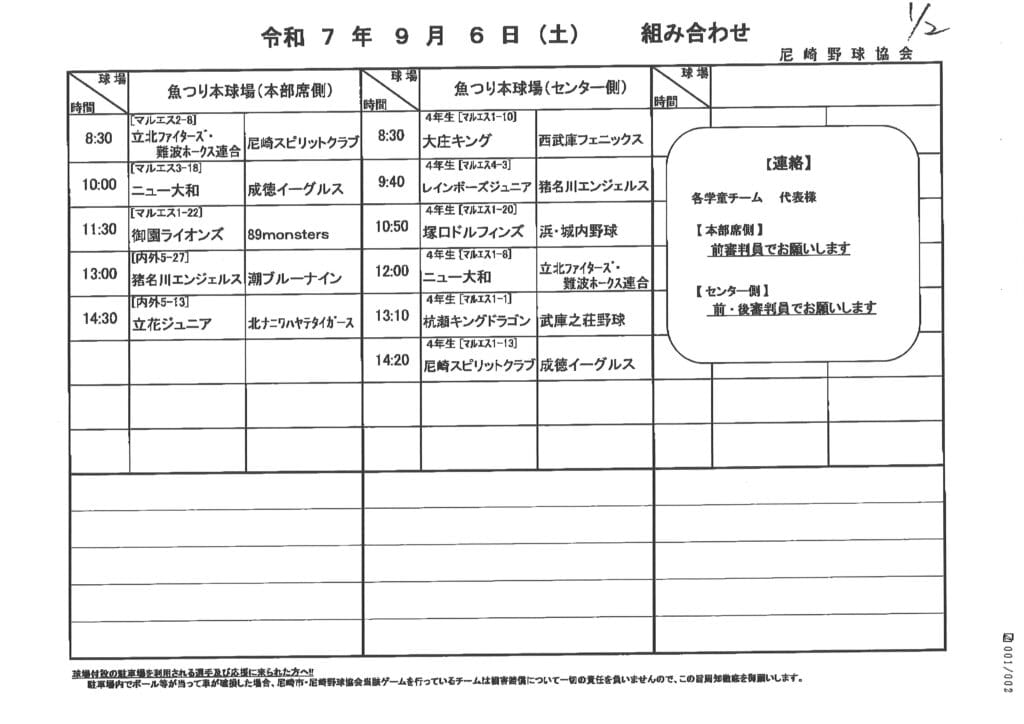 令和 7 年 9 月 6 日 (土) 組み合わせ
1/2
尼崎野球協会
球場
時間
魚つり本球場(本部席側)
球場
時間
魚つり本球場(センター側)
球場
時間
8:30
[マルエス2-8]
立北ファイターズ・
難波ホークス連合
尼崎スピリットクラブ
8:30
4年生 [マルエス1-10]
大庄キング
西武庫フェニックス
10:00
[マルエス3-18]
ニュー大和
成徳イーグルス
9:40
4年生 [マルエス4-3]
レインボーズジュニア
猪名川エンジェルス
11:30
[マルエス1-22]
御園ライオンズ
89monsters
10:50
4年生 [マルエス1-20]
塚口ドルフィンズ
浜・城内野球
13:00
[内外5-27]
猪名川エンジェルス
潮ブルーナイン
12:00
4年生 [マルエス1-8]
ニュー大和
立北ファイターズ・
難波ホークス連合
14:30
[内外5-13]
立花ジュニア
北ナニワハヤテタイガース
13:10
4年生 [マルエス1-1]
杭瀬キングドラゴン
武庫之荘野球
14:20
4年生 [マルエス1-13]
尼崎スピリットクラブ
成徳イーグルス
【連絡】
各学童チーム 代表様
【本部席側】
前審判員でお願いします
【センター側】
前・後審判員でお願いします
球場付設の駐車場を利用される選手及び応援に来られた方へ!!
駐車場内でボール等が当って車が破損した場合、尼崎市・尼崎野球協会当該ゲームを行っているチームは損害賠償について一切の責任を負いませんので、この旨周知徹底を御願いします。
001/002